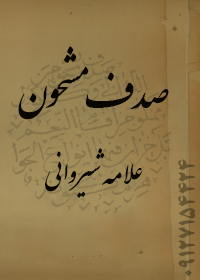 صدف مشحون
علامه شیروانی
۰۹۱۲۷۱۵۴۴۲۴